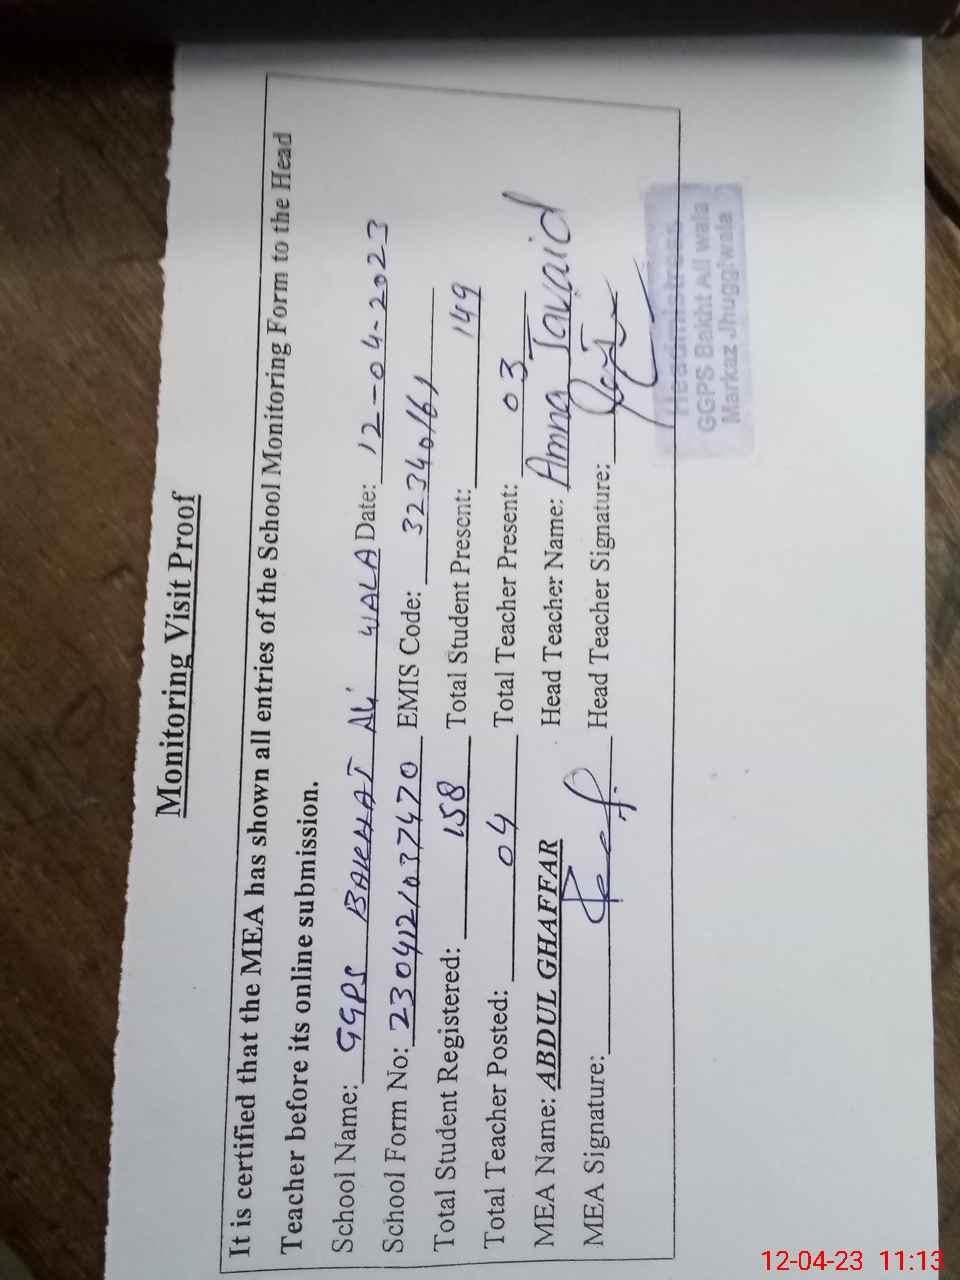 Monitoring Visit Proof
It is certified that the MEA has shown all entries of the School Monitoring Form to the Head
Teacher before its online submission.
School Name: GGPS BAKHAT Ali WALA Date: 12-04-2023
School Form No: 230412/037470 EMIS Code: 32340161
Total Student Registered: 158 Total Student Present: 149
Total Teacher Posted: 04 Total Teacher Present: 03
MEA Name: ABDUL GHAFFAR Head Teacher Name: Amna Javaid
MEA Signature: Head Teacher Signature:
Headmistress
GGPS Bakht Ali wala
Markaz Jhuggiwala
12-04-23 11:13